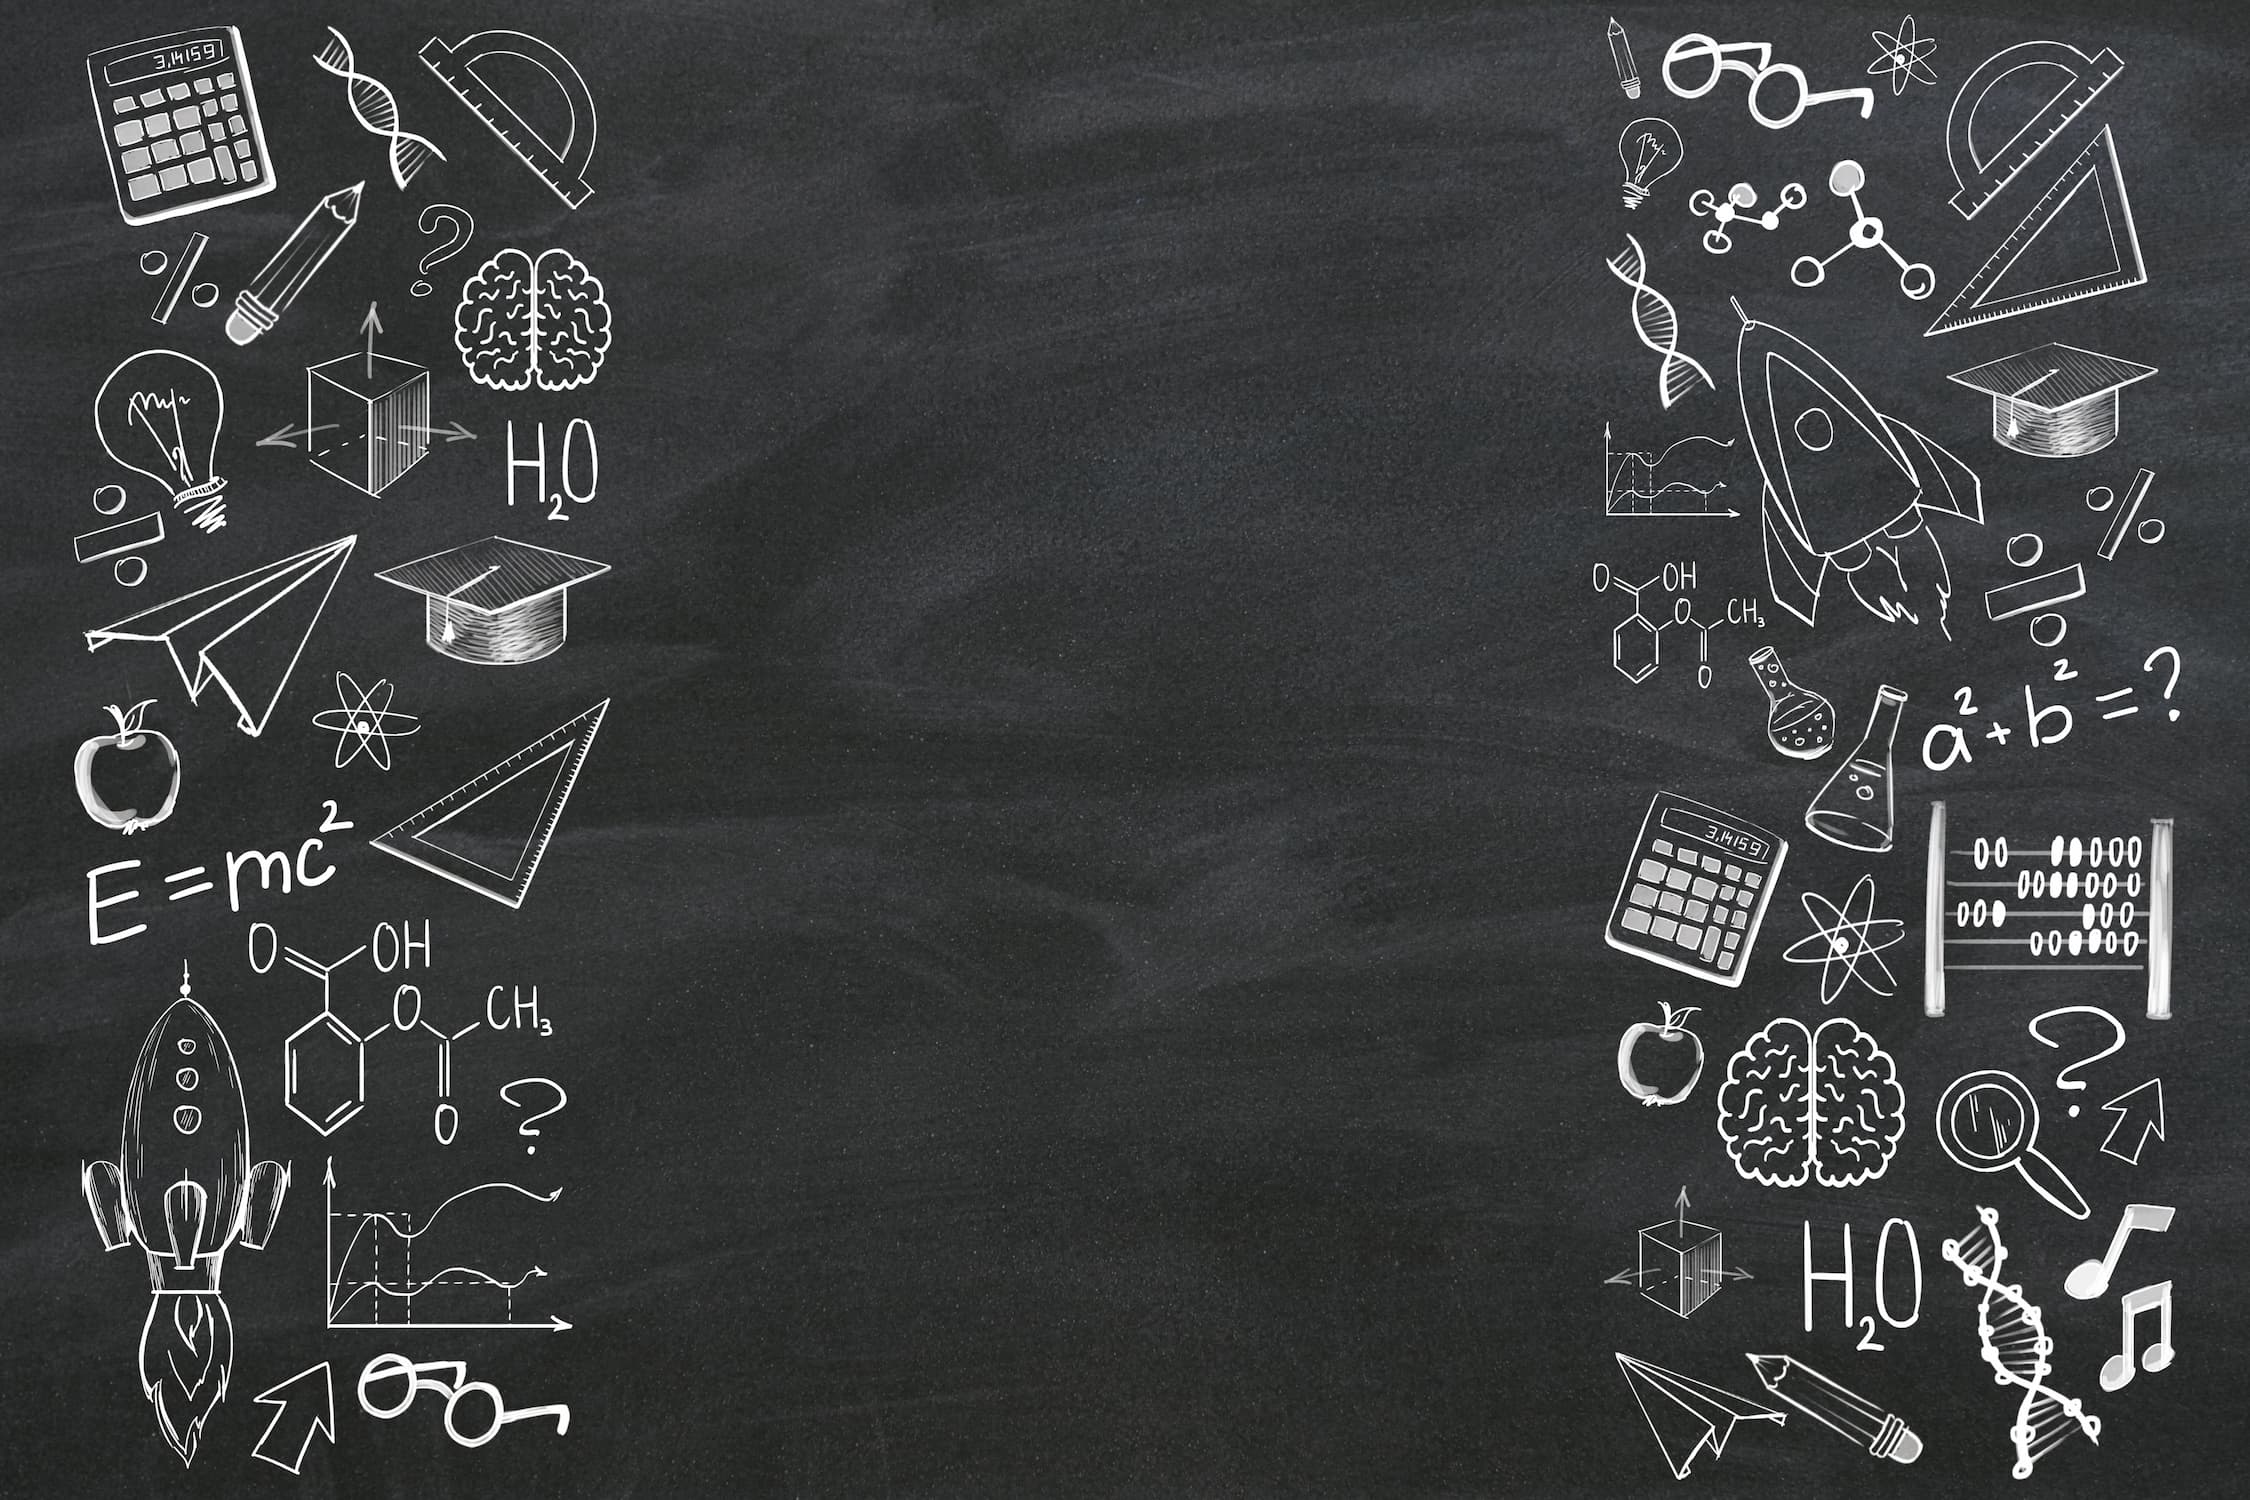 3,14159
?
H₂O
E=mc²
O OH
O CH₃
O
?
O OH
O CH₃
O
a²+b²=?
3,14159
?
H₂O